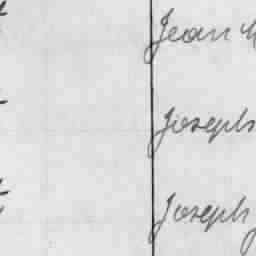 Jean
Joseph
Joseph